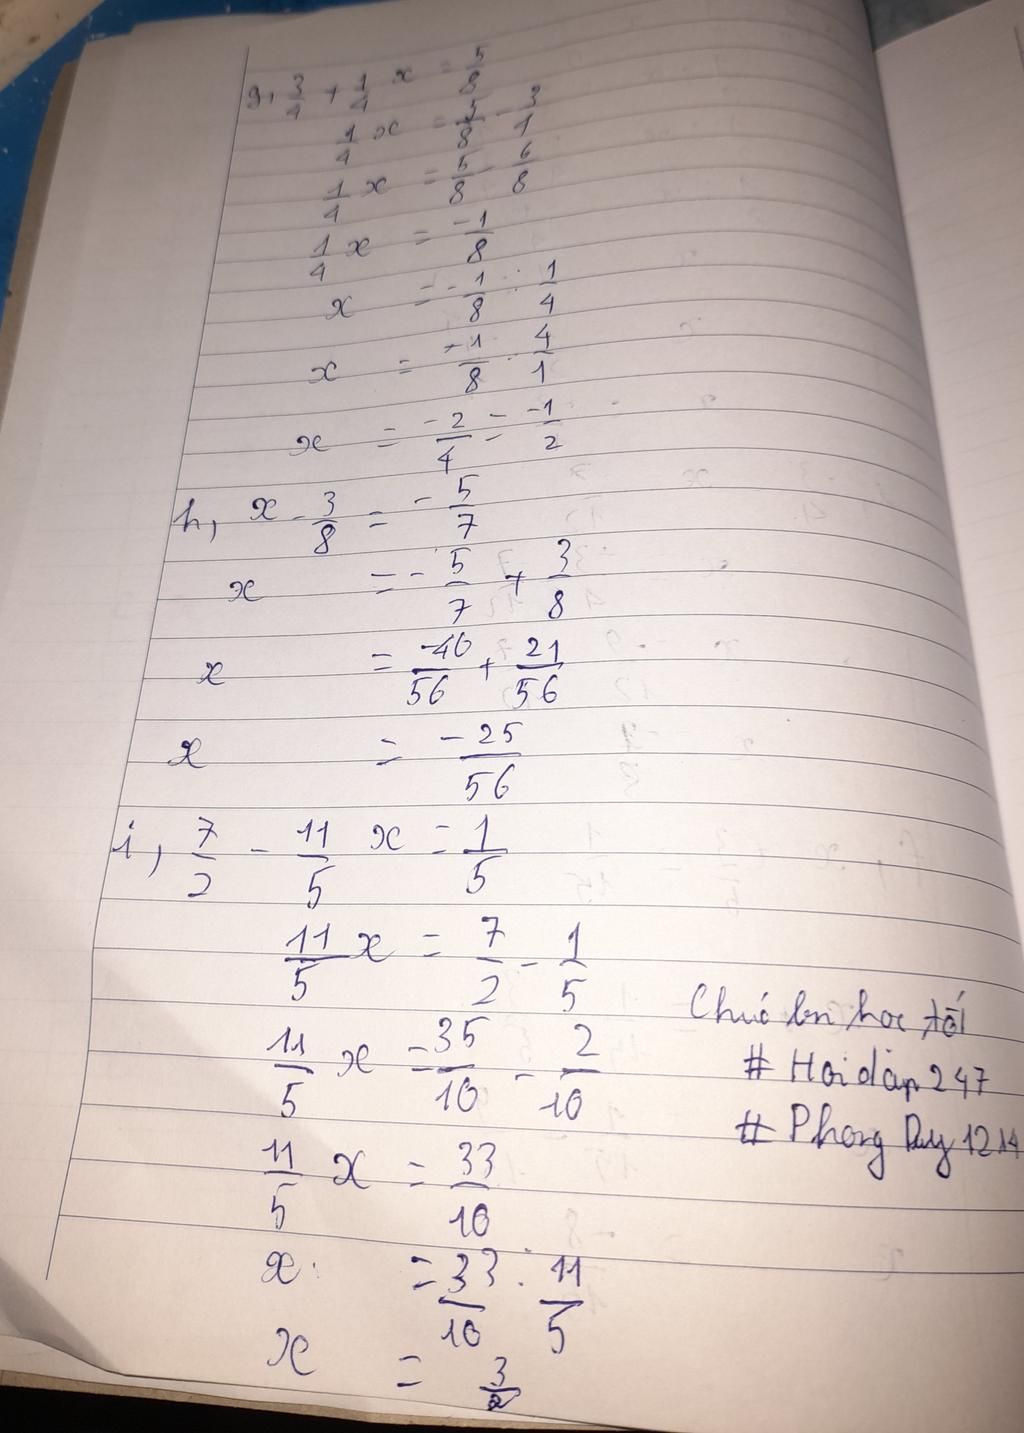 g, 3/4 + 1/4 x = 5/8
1/4 x = 5/8 - 3/4
1/4 x = 5/8 - 6/8
1/4 x = -1/8
x = -1/8 : 1/4
x = -1/8 . 4/1
x = -2/4 = -1/2
h, x - 3/8 = -5/7
x = -5/7 + 3/8
x = -40/56 + 21/56
x = -25/56
i, 7/2 - 11/5 x = 1/5
11/5 x = 7/2 - 1/5
11/5 x = 35/10 - 2/10
11/5 x = 33/10
x = 33/10 : 11/5
x = 3/2
Chúc bn học tốt
# Hoidap247
# Phong Duy 1214